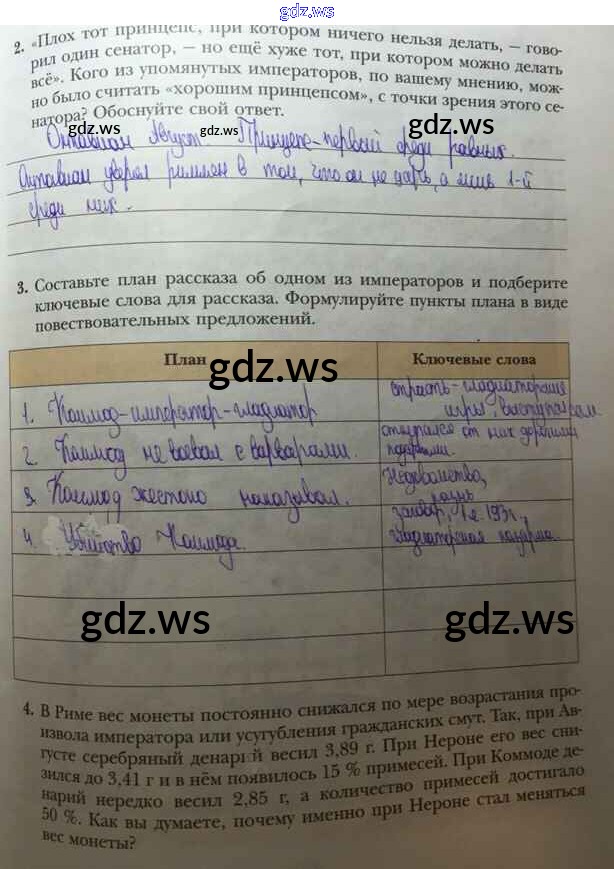 gdz.ws
2. «Плох тот принцепс, при котором ничего нельзя делать, – гово-
рил один сенатор, – но ещё хуже тот, при котором можно делать
всё». Кого из упомянутых императоров, по вашему мнению, мож-
но было считать «хорошим принцепсом», с точки зрения этого се-
натора? Обоснуйте свой ответ.
gdz.ws gdz.ws gdz.ws
Октавиан Август – Принцепс-первый среди равных.
Октавиан уверял римлян в том, что он не царь, а лишь 1-й
среди них.
3. Составьте план рассказа об одном из императоров и подберите
ключевые слова для рассказа. Формулируйте пункты плана в виде
повествовательных предложений.
План Ключевые слова
gdz.ws
1. Коммод-император-гладиатор страсть-гладиаторские
игры, выступал
2. Коммод не воевал с варварами. откупался от них дорогими
подарками.
3. Коммод жестоко наказывал. Недовольства,
казнь
4. Убийство Коммода. заговор, 193г.
гладиаторская казарма.
gdz.ws gdz.ws
4. В Риме вес монеты постоянно снижался по мере возрастания про-
извола императора или усугубления гражданских смут. Так, при Ав-
густе серебряный денарий весил 3,89 г. При Нероне его вес сни-
зился до 3,41 г и в нём появилось 15 % примесей. При Коммоде де-
нарий нередко весил 2,85 г, а количество примесей достигало
50 %. Как вы думаете, почему именно при Нероне стал меняться
вес монеты?